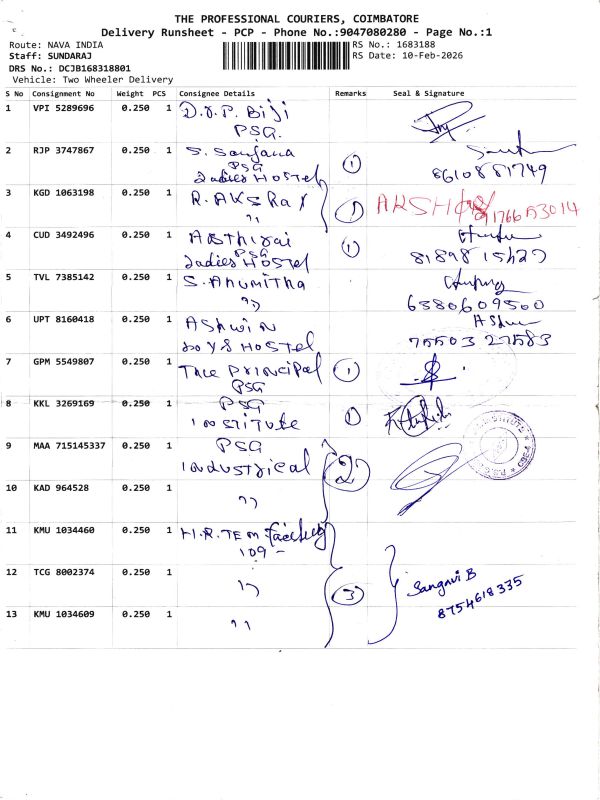 THE PROFESSIONAL COURIERS, COIMBATORE
Delivery Runsheet - PCP - Phone No.:9047080280 - Page No.:1
Route: NAVA INDIA
RS No.: 1683188
Staff: SUNDARAJ
RS Date: 10-Feb-2026
DRS No.: DCJB168318801
Vehicle: Two Wheeler Delivery
S No Consignment No Weight PCS Consignee Details Remarks Seal & Signature
1 VPI 5289696 0.250 1 D.J.P. Biji
PSG.
2 RJP 3747867 0.250 1 S. Sanjana
PSG
Ladies Hostel 1 8610881749
3 KGD 1063198 0.250 1 R. AKSHAY
" 1 AKSH
4 CUD 3492496 0.250 1
PSG
Ladies Hostel 1
5 TVL 7385142 0.250 1 S. Anumitha
" 6380609500
6 UPT 8160418 0.250 1 Ashwin
Boys Hostel 75503 27583
7 GPM 5549807 0.250 1 The Principal
PSG 1
8 KKL 3269169 0.250 1 PSG
institute 1
9 MAA 715145337 0.250 1 PSG
industrical 2
10 KAD 964528 0.250 1
"
11 KMU 1034460 0.250 1
109 -
12 TCG 8002374 0.250 1
" 3 Sangavi B
8754618335
13 KMU 1034609 0.250 1
"